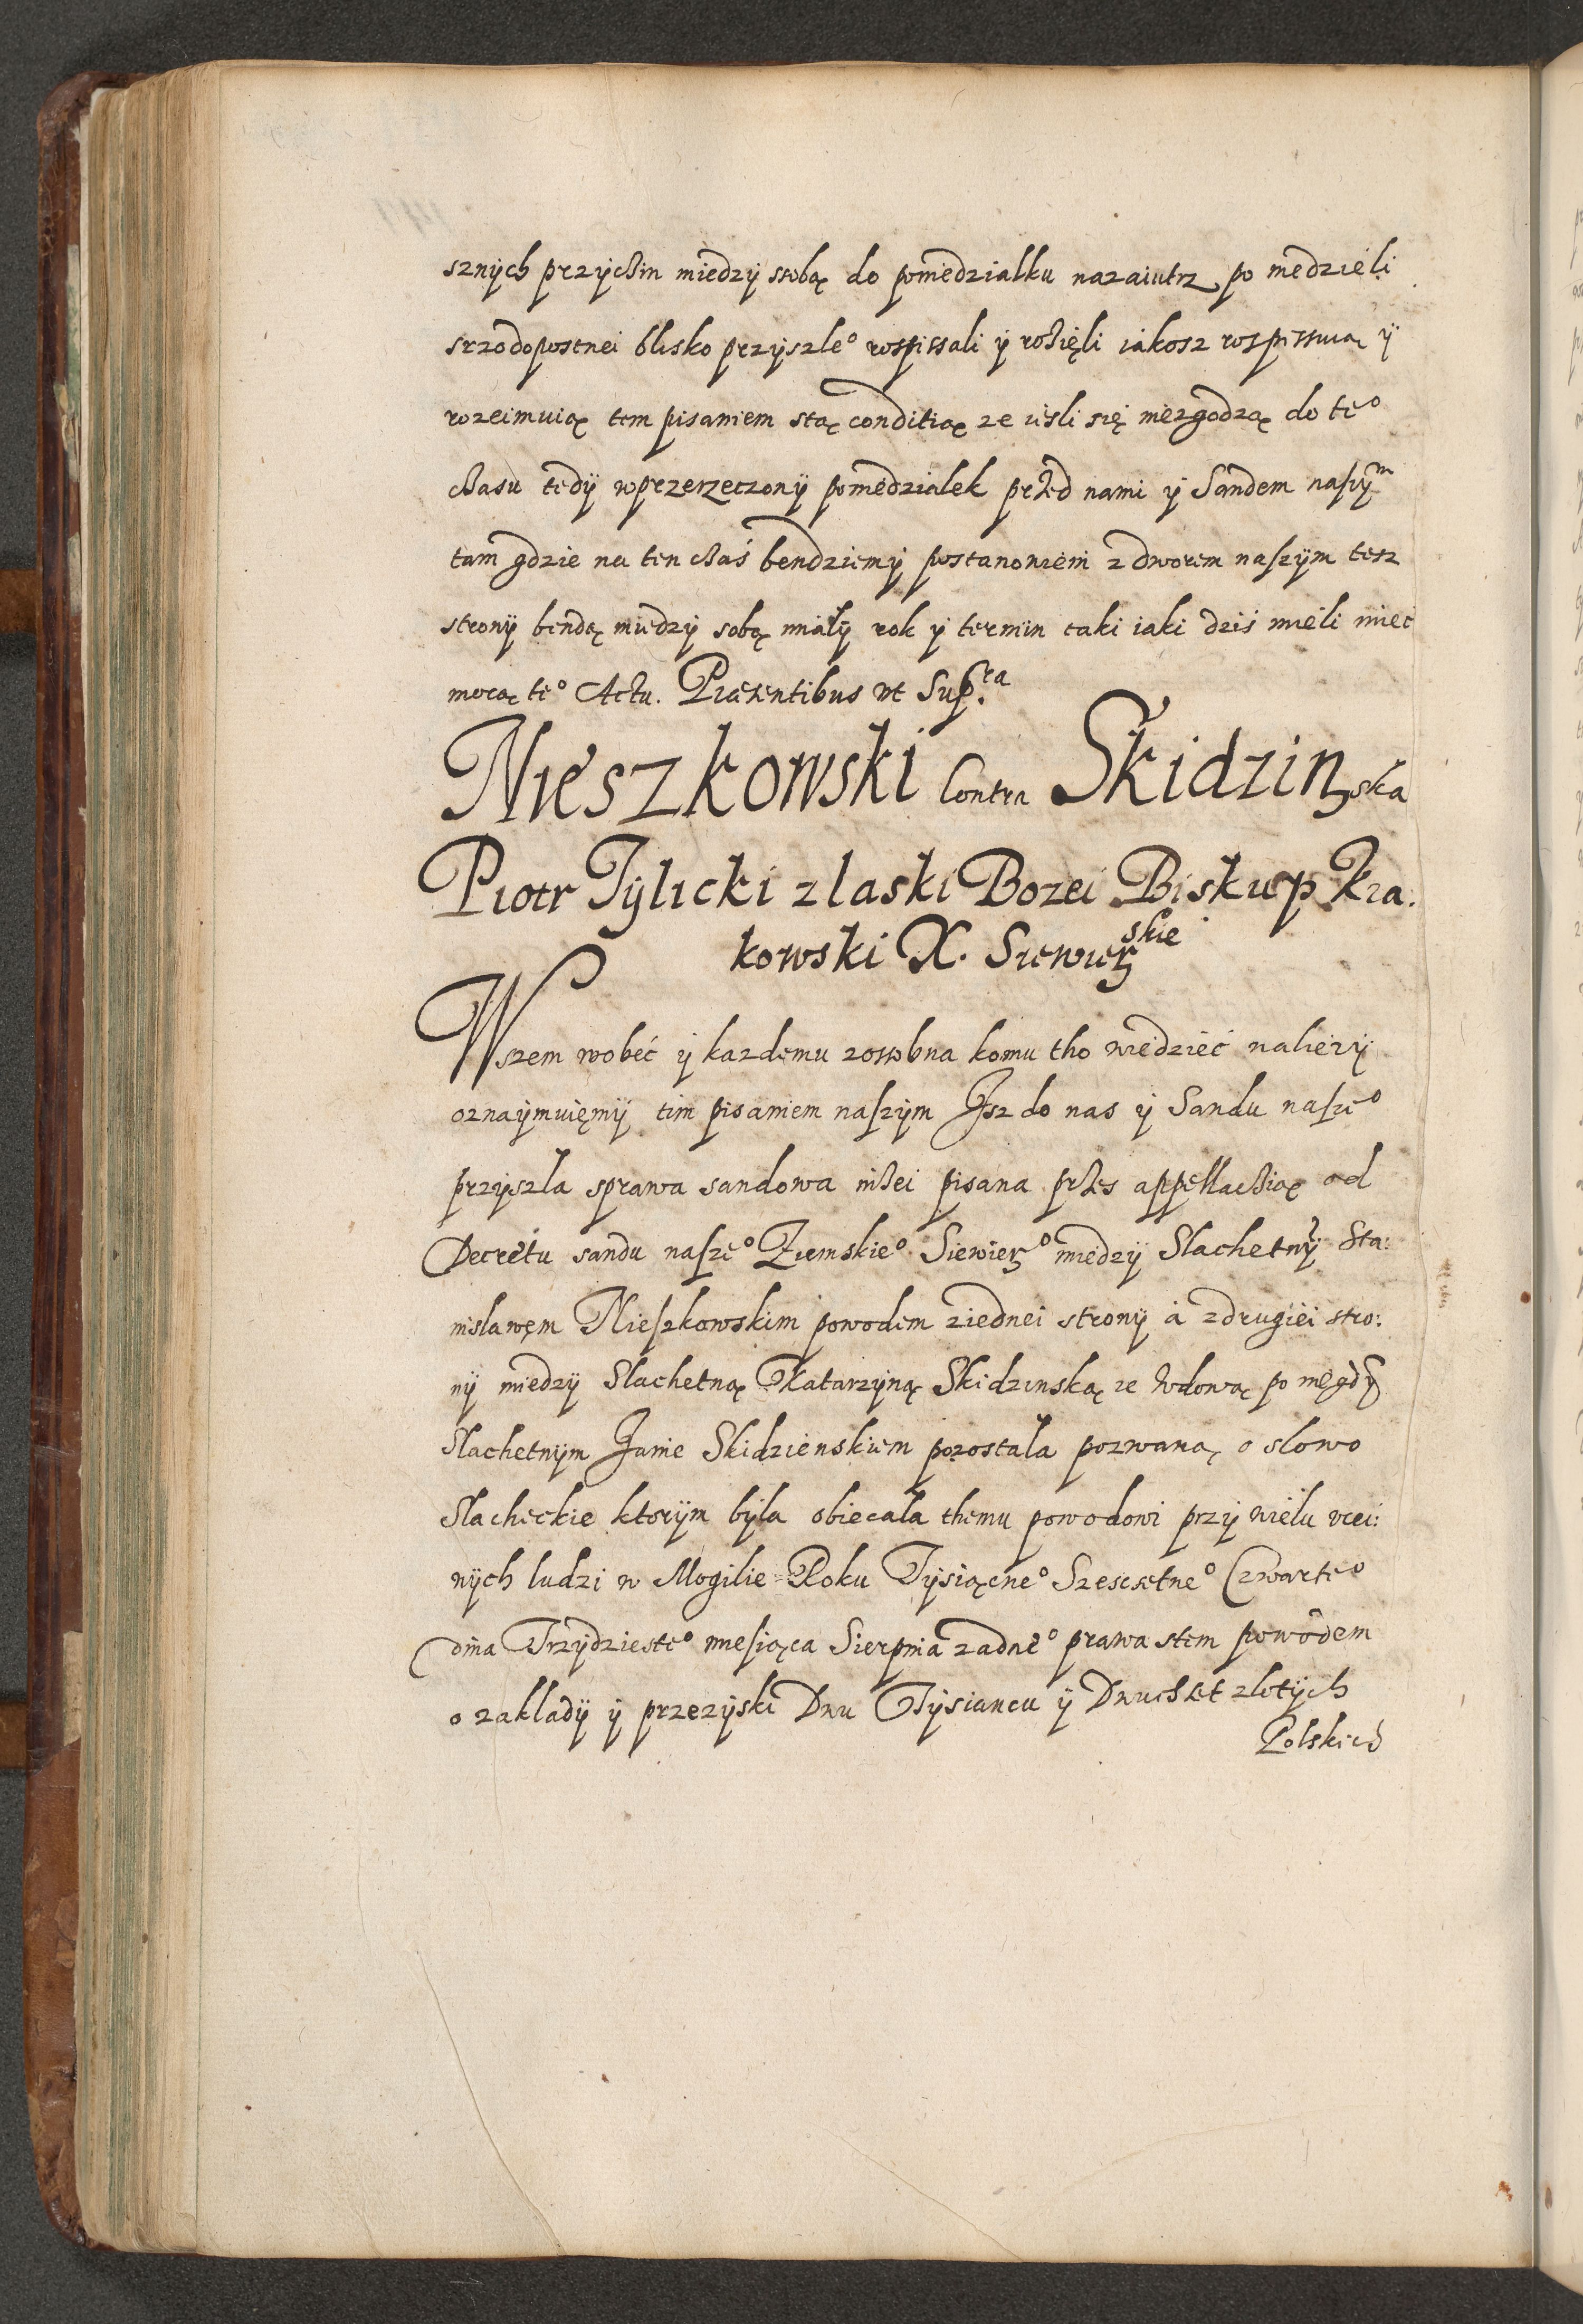 sznÿch przÿchin miedzÿ ssobą do poniedzialku nazaiutrz po niedzieli
srzodopostnei blisko przÿszleº rospissali ÿ rozięli iakosz rospissuią ÿ
rozeimuią tem pisaniem stą conditią ze iesli się niezgodzą do teº
czasu tedÿ wprzerzeczonÿ poniedzialek przed nami ÿ Sandem naszÿm
tam gdzie na ten czas bendziemÿ postanowieni z dworem naszÿm tesz
stronÿ bendą miedzÿ sobą mialÿ rok ÿ termin taki iaki dzis mieli miec
mocą teº Actu. Præsentibus ut Sup.ra
Nieszkowski Contra Skidzinska
Piotr Tÿlicki z laski Bozei Biskup Kra:
kowski X. Siewierskie
Wszem wobec ÿ kazdemu zossobna komu tho wiedziec naliezÿ
oznaÿmuięmÿ tim pisaniem naszÿm Isz do nas ÿ Sandu naszeº
przÿszla sprawa sandowa nizei pisana przes appellaczią od
Decretu sandu naszeº Ziemskieº Siewierº miedzÿ Slachetnÿ Sta:
nislawęm Nieszkowskim powodem ziednei stronÿ à zdrugiei stro:
nÿ miedzÿ Slachetną Katarzÿną Skidzinską ze wdową po niegdÿ
Slachetnÿm Janie Skidzienskiem pozostala pozwaną o slowo
Slacheckie ktorÿm bÿla obiecala themu powodowi przÿ wielu ucci:
wÿch ludzi w Mogilie Roku Tÿsiącneº Szescsetneº Czwarteº
dnia Trzÿdziesteº miesiąca Sierpnia zadneº prawa stem powodem
o zakladÿ ÿ przezÿski Dwu Tÿsiancu ÿ Dwuchset zlotÿch
Polskich